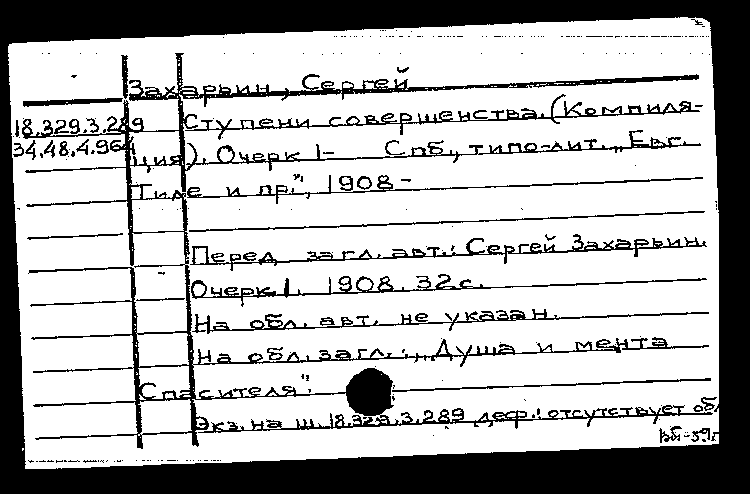 Захарьин, Сергей
18.329.3.289 Ступени совершенства. (Компиля-
34.48.4.964 ция). Очерк 1- Спб., типо-лит. „Евг.
Тиле и пр.", 1908-
Перед загл. авт.: Сергей Захарьин.
Очерк 1. 1908. 32 с.
На обл. авт. не указан.
На обл. загл.: „Душа и мента
Спасителя".
Экз. на ш. 18.329.3.289 деф.: отсутствует обл